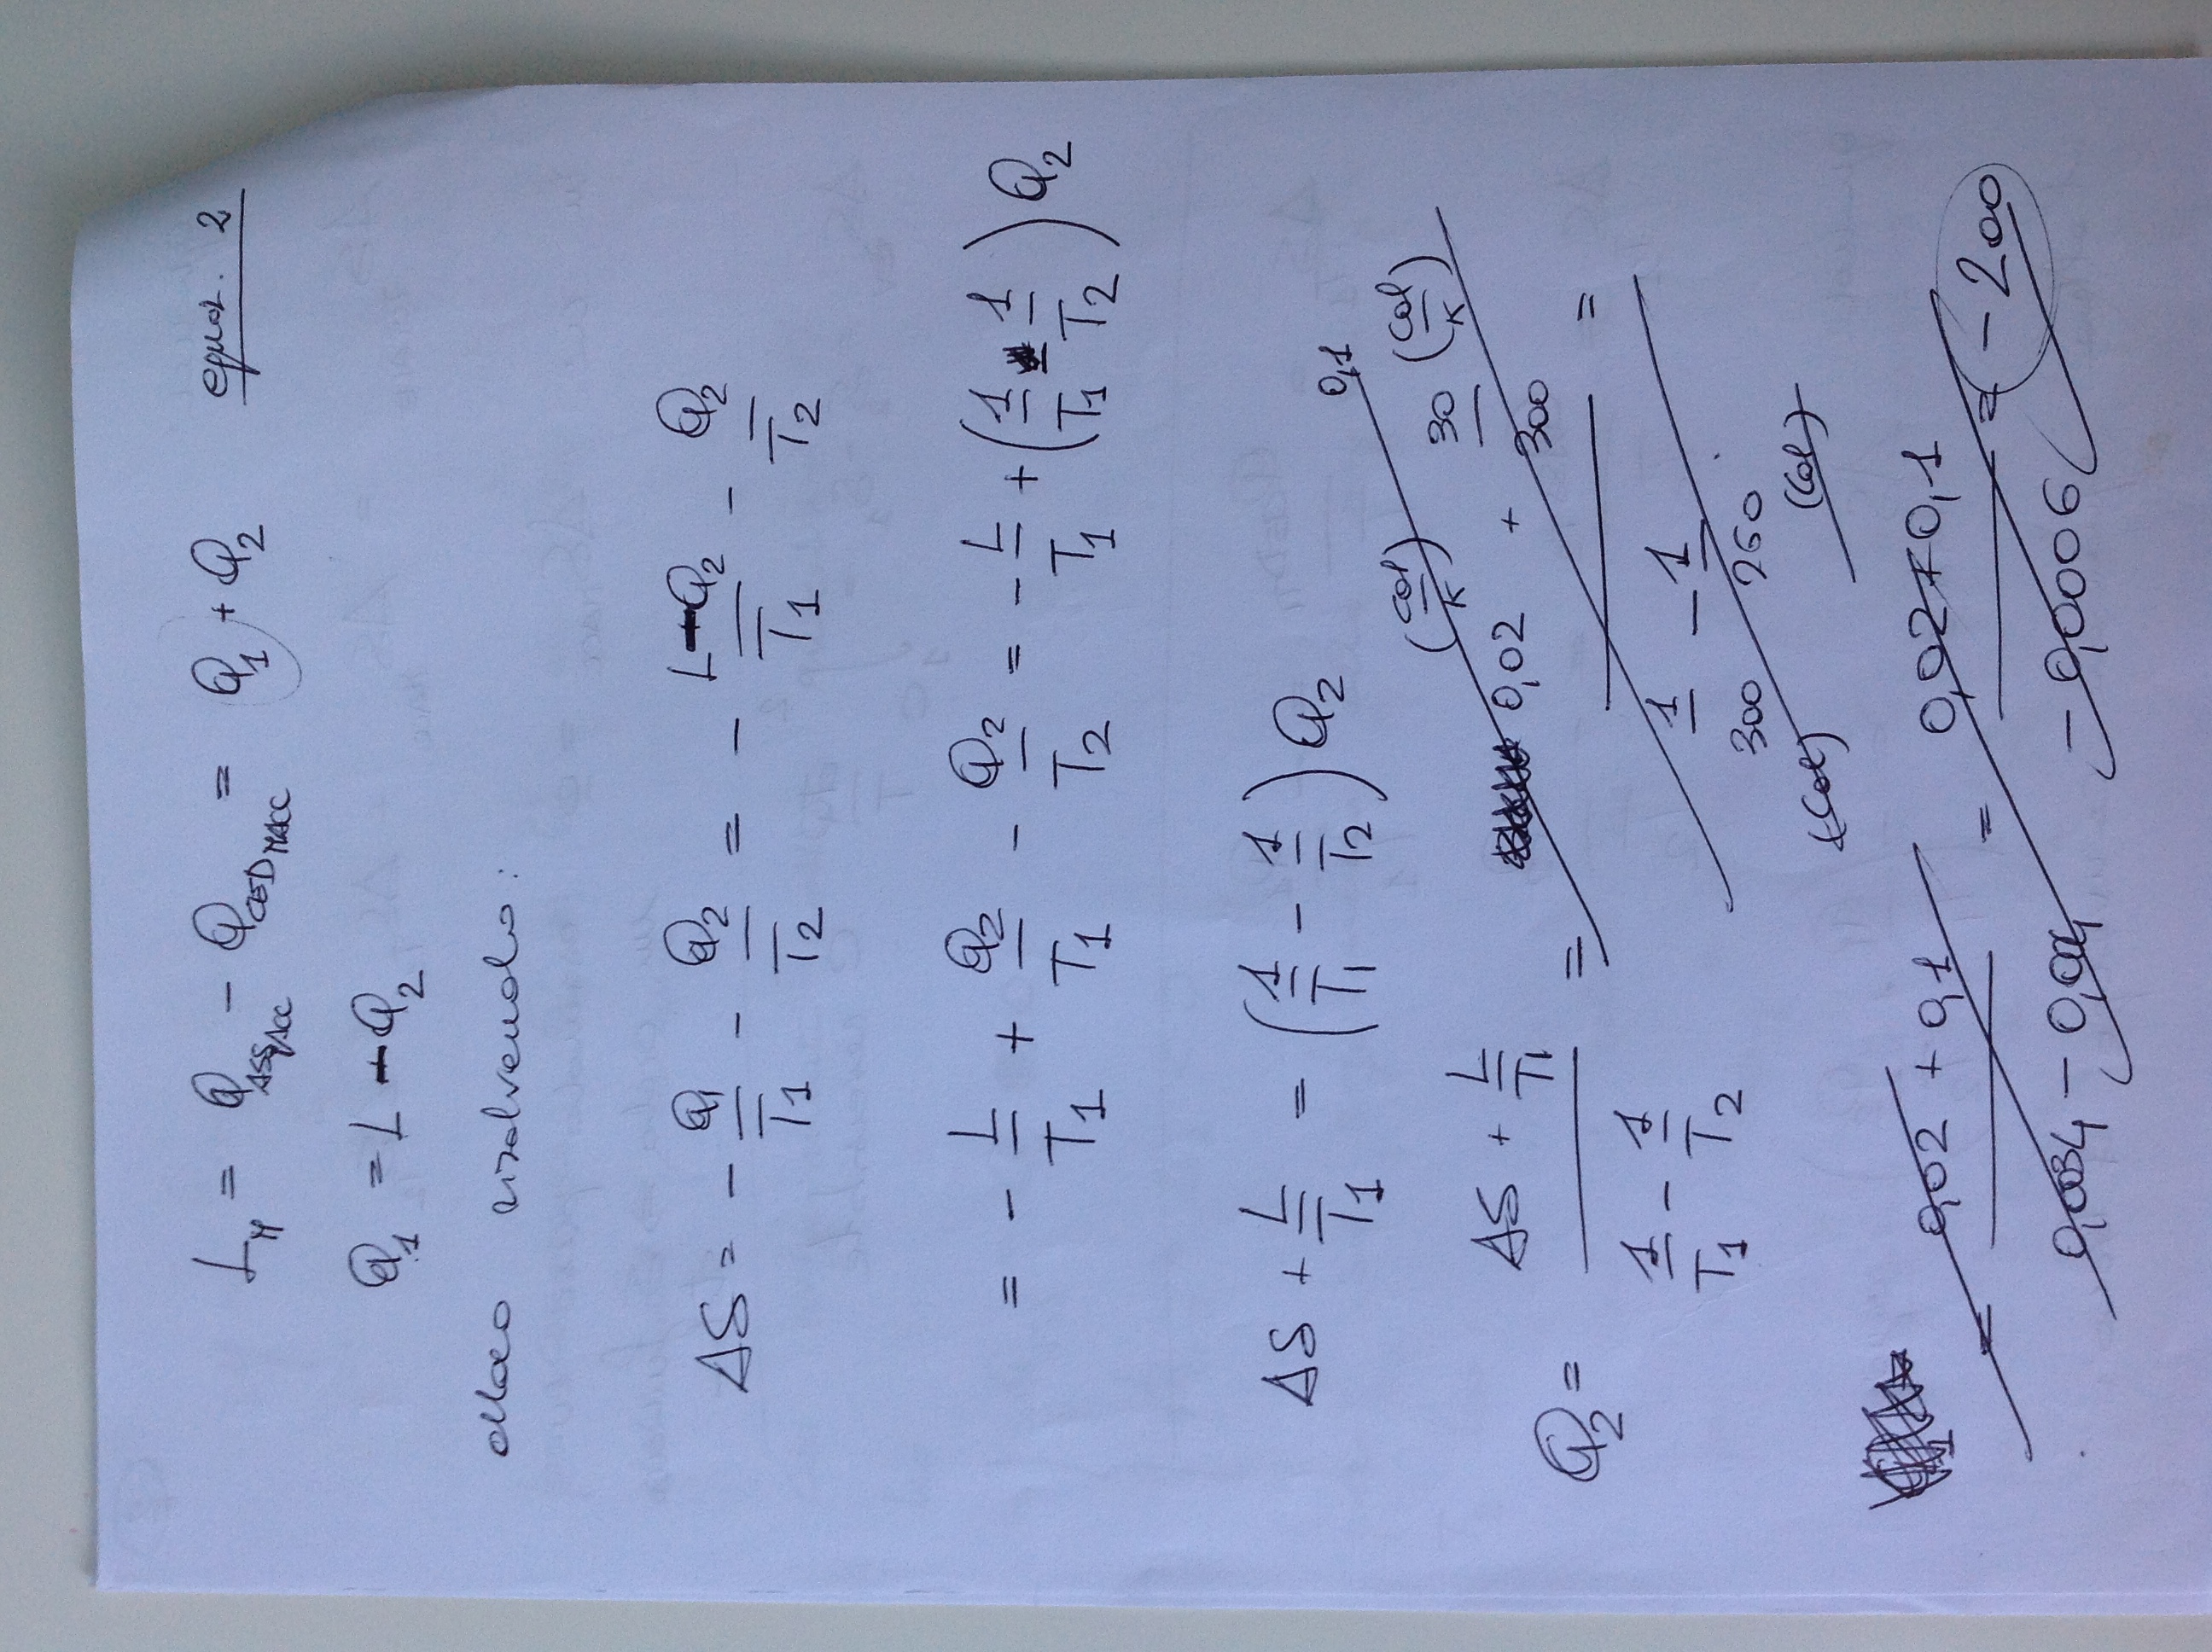 L_M = Q_ASS MACC - Q_CED MACC = Q_1 + Q_2 equaz. 2
Q_1 = L - Q_2
allora risolvendo:
ΔS = - Q_1/T_1 - Q_2/T_2 = - (L - Q_2)/T_1 - Q_2/T_2
= - L/T_1 + Q_2/T_1 - Q_2/T_2 = - L/T_1 + (1/T_1 - 1/T_2) Q_2
ΔS + L/T_1 = (1/T_1 - 1/T_2) Q_2
0,1
Q_2 = (ΔS + L/T_1)/(1/T_1 - 1/T_2) = (0,02 (cal/K) + 30/300 (cal/K))/(1/300 - 1/250) =
(cal) (cal)
= (0,02 + 0,1)/(0,0034 - 0,004) = (0,02 + 0,1)/(-0,0006) = -200